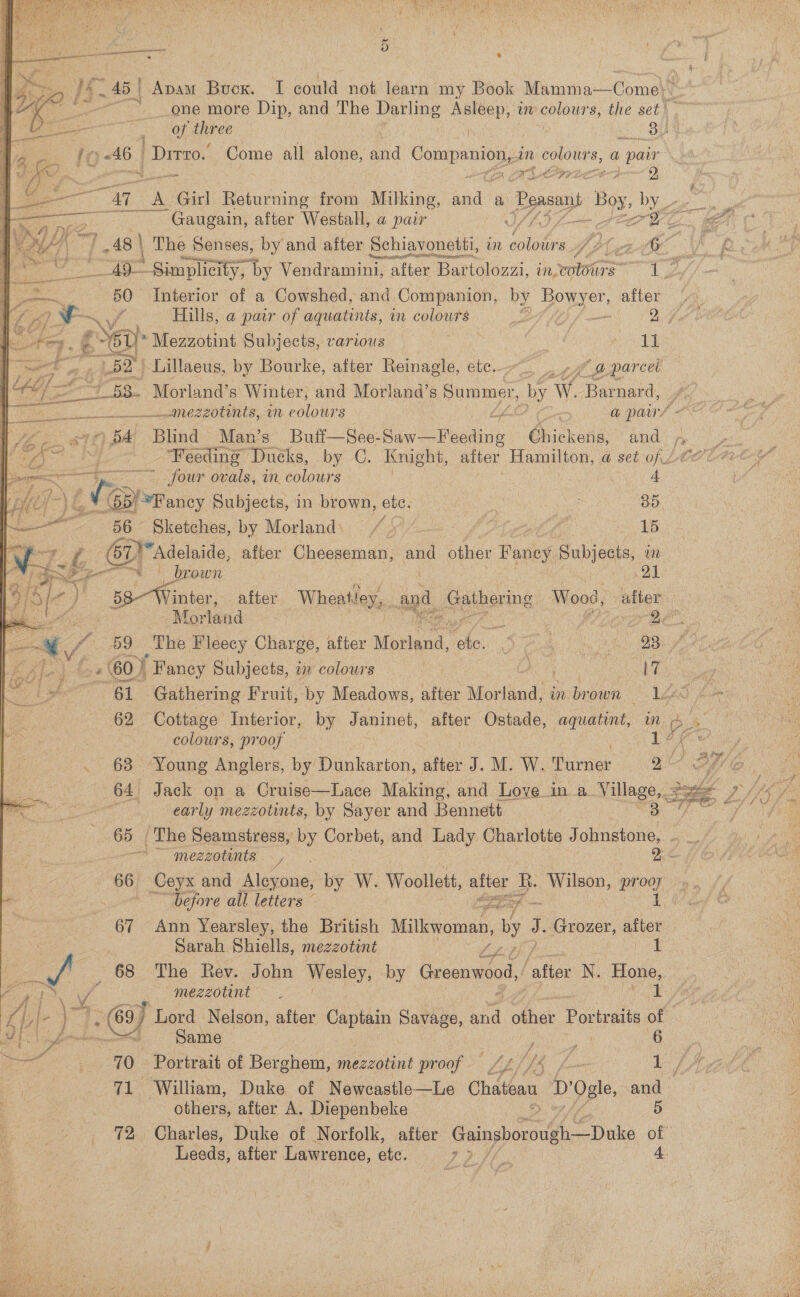 5
45 Adam Buck. I could not learn my Book Mamma—Come
one more Dip, and The Darling Asleep, in colours, the set
of three 3
46 Ditto. Come all alone, and Companion, in colours, a pair
2
47 A Girl Returning from Milking, and a Peasant Boy, by
Gaugain, after Westall, a pair 2
48 The Senses, by and after Schiavonetti, in colours
49 Simplicity, by Vendramini, after Bartolozzi, in colours 1
50 Interior of a Cowshed, and Companion, by Bowyer, after
Hills, a pair of aquatints, in colours 2
51 * Mezzotint Subjects, various 11
52 Lillaeus, by Bourke, after Reinagle, etc. a parcel
53 Morland's Winter, and Morland's Summer, by W. Barnard,
mezzotints, in colours a pair
54 Blind Man's Buff—See-Saw—Feeding Chickens, and
Feeding Ducks, by C. Knight, after Hamilton, a set of
four ovals, in colours 4
55 *Fancy Subjects, in brown, etc. 35
56 Sketches, by Morland 15
57 *Adelaide, after Cheeseman, and other Fancy Subjects, in
brown 21
58 Winter, after Wheatley, and Gathering Wood, after
Morland 2
59 The Fleecy Charge, after Morland, etc. 23
60 Fancy Subjects, in colours 17
61 Gathering Fruit, by Meadows, after Morland, in brown 1
62 Cottage Interior, by Janinet, after Ostade, aquatint, in
colours, proof 1
63 Young Anglers, by Dunkarton, after J. M. W. Turner 2
64 Jack on a Cruise—Lace Making, and Love in a Village,
early mezzotints, by Sayer and Bennett 3
65 The Seamstress, by Corbet, and Lady Charlotte Johnstone,
mezzotints 2
66 Ceyx and Alcyone, by W. Woollett, after R. Wilson, proof
before all letters 1
67 Ann Yearsley, the British Milkwoman, by J. Grozer, after
Sarah Shiells, mezzotint 1
68 The Rev. John Wesley, by Greenwood, after N. Hone,
mezzotint 1
69 Lord Nelson, after Captain Savage, and other Portraits of
Same 6
70 Portrait of Berghem, mezzotint proof 1
71 William, Duke of Newcastle—Le Chateau D'Ogle, and
others, after A. Diepenbeke 5
72 Charles, Duke of Norfolk, after Gainsborough—Duke of
Leeds, after Lawrence, etc. 4